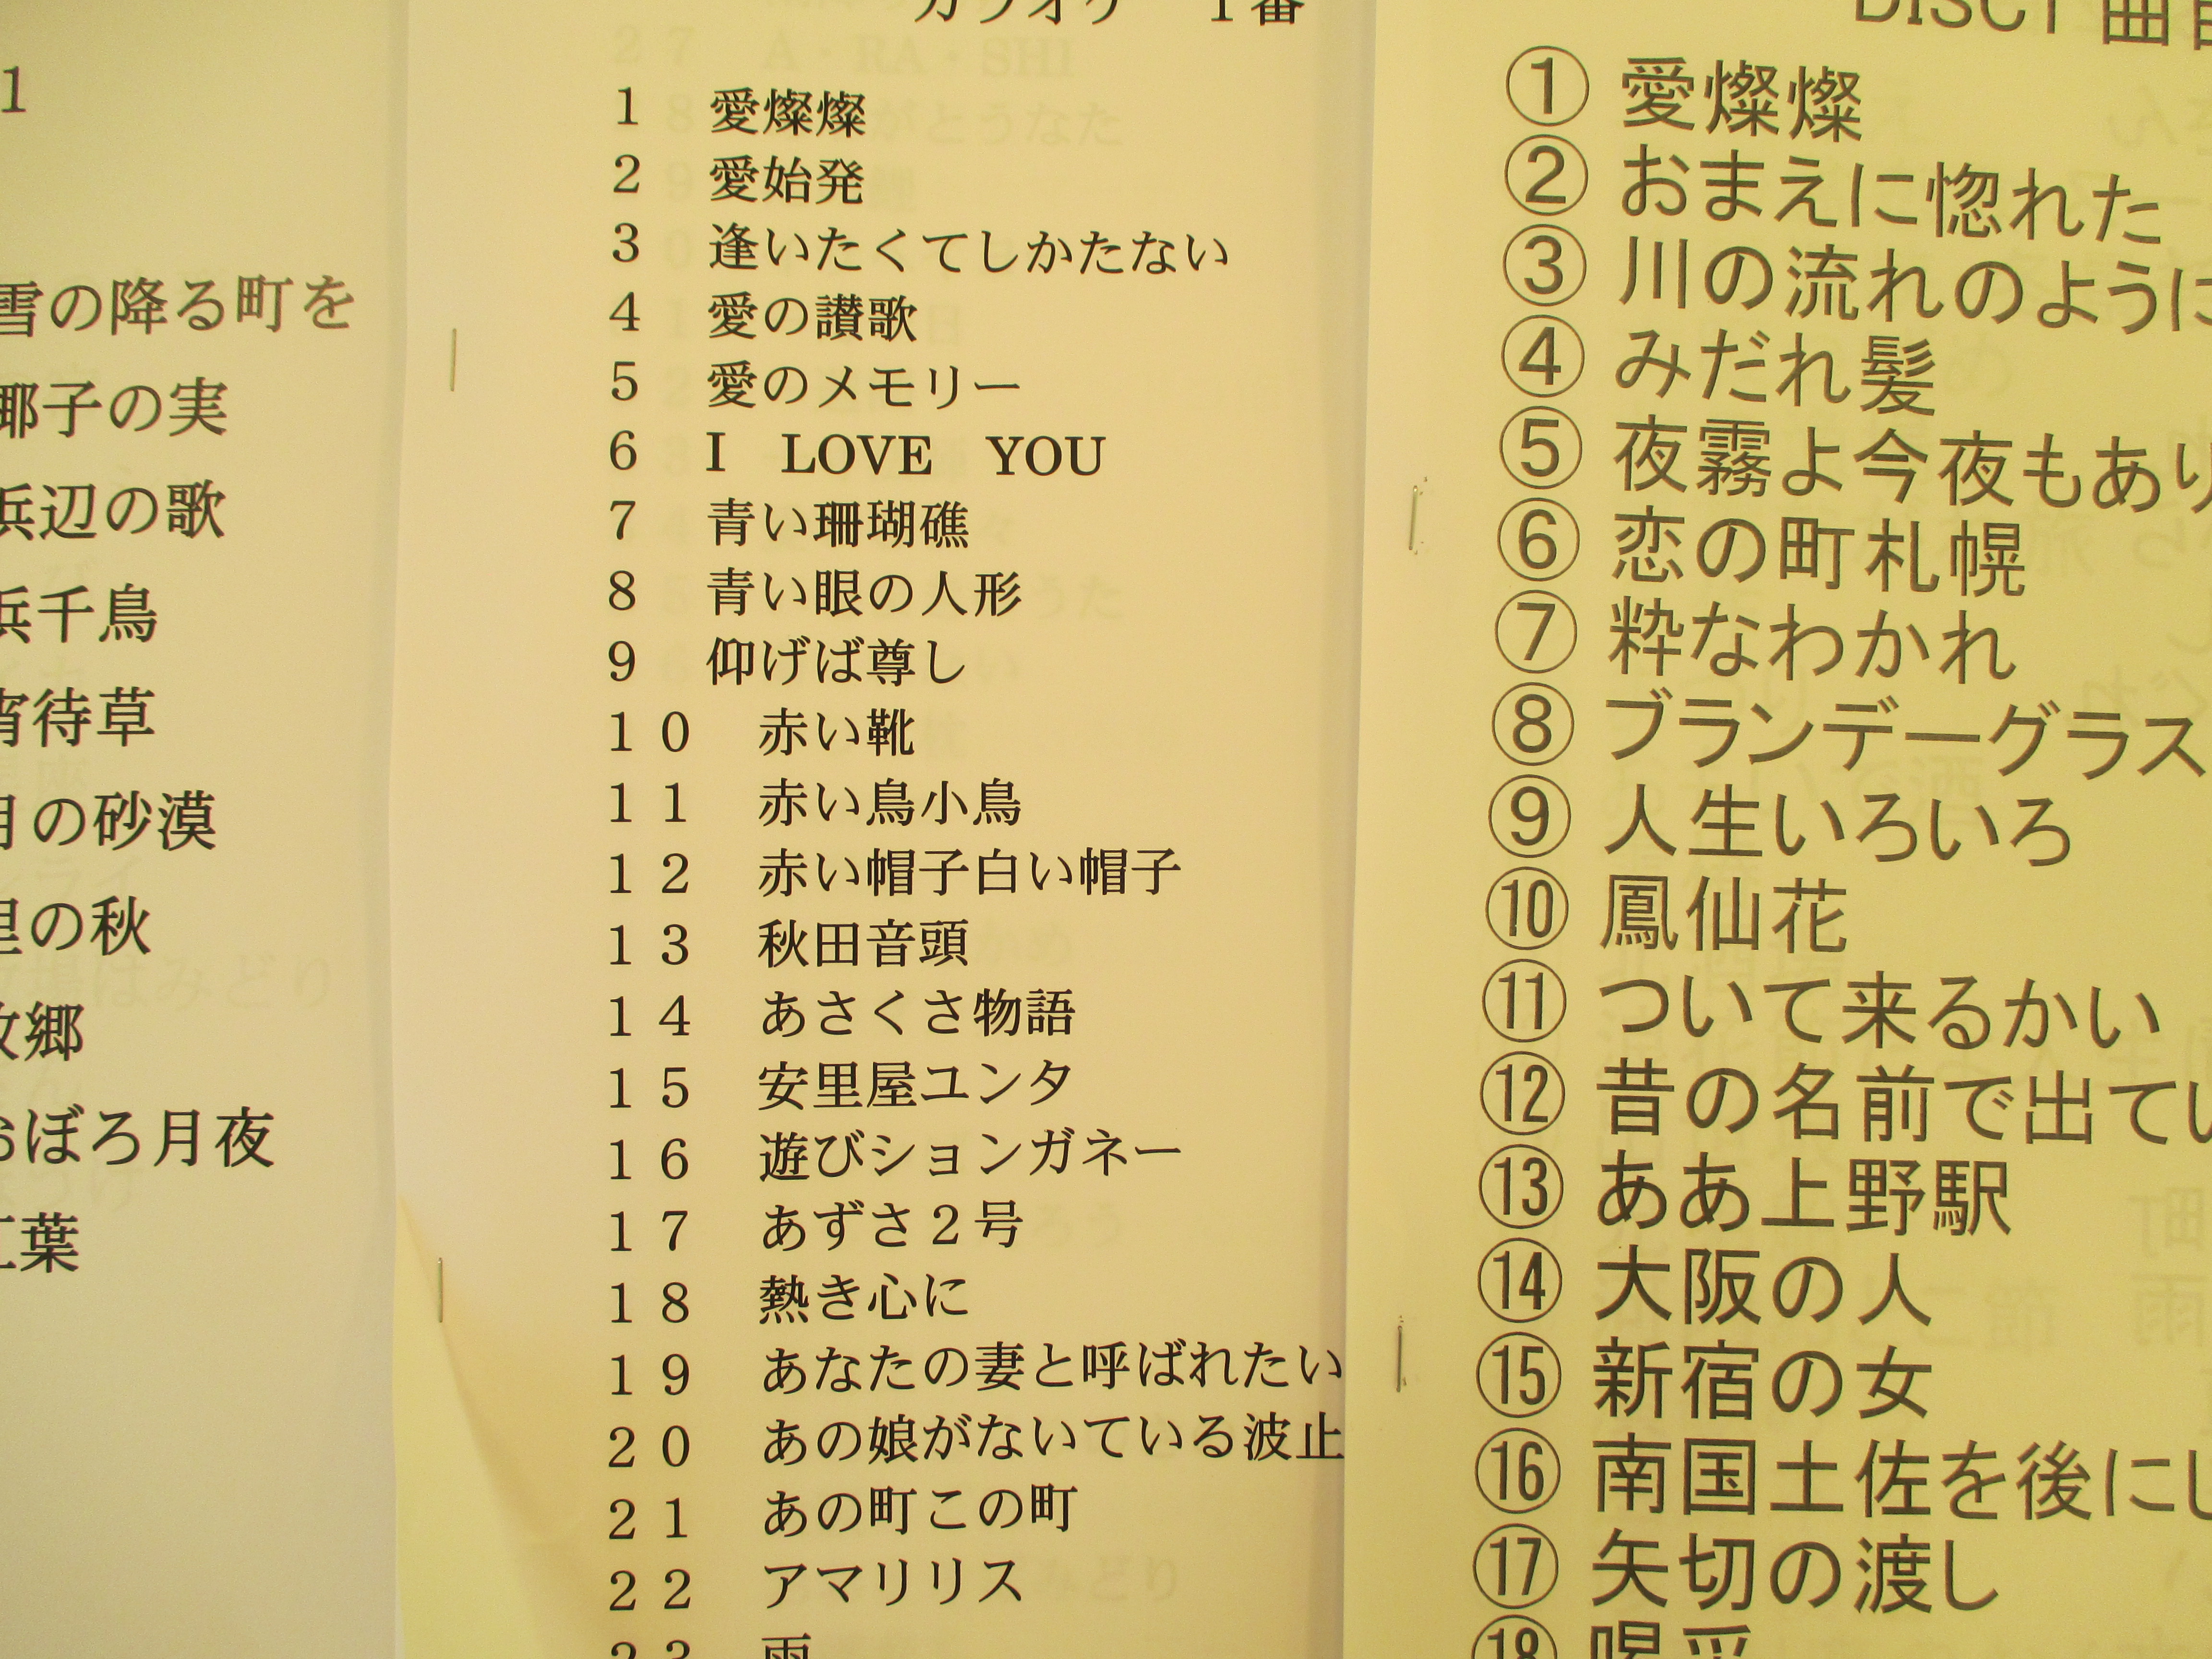 1
雪の降る町を
椰子の実
浜辺の歌
浜千鳥
宵待草
月の砂漠
里の秋
故郷
おぼろ月夜
紅葉
カラオケ　1番
1 愛燦燦
2 愛始発
3 逢いたくてしかたない
4 愛の讃歌
5 愛のメモリー
6 I　LOVE　YOU
7 青い珊瑚礁
8 青い眼の人形
9 仰げば尊し
10 赤い靴
11 赤い鳥小鳥
12 赤い帽子白い帽子
13 秋田音頭
14 あさくさ物語
15 安里屋ユンタ
16 遊びションガネー
17 あずさ2号
18 熱き心に
19 あなたの妻と呼ばれたい
20 あの娘がないている波止
21 あの町この町
22 アマリリス
23 雨
DISC1 曲目
① 愛燦燦
② おまえに惚れた
③ 川の流れのように
④ みだれ髪
⑤ 夜霧よ今夜もあり
⑥ 恋の町札幌
⑦ 粋なわかれ
⑧ ブランデーグラス
⑨ 人生いろいろ
⑩ 鳳仙花
⑪ ついて来るかい
⑫ 昔の名前で出てい
⑬ ああ上野駅
⑭ 大阪の人
⑮ 新宿の女
⑯ 南国土佐を後にし
⑰ 矢切の渡し
⑱ 喝采